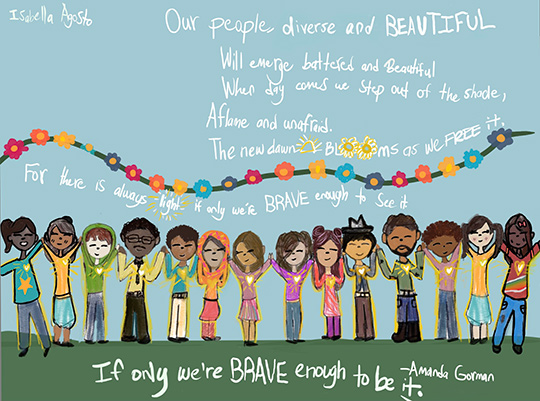 Isabella Agosto
Our people, diverse and BEAUTIFUL
Will emerge battered and Beautiful
When day comes we step out of the shade,
Aflame and unafraid.
The new dawn BLOOMS as we FREE it.
For there is always light if only we're BRAVE enough to see it
If only we're BRAVE enough to be it.
-Amanda Gorman